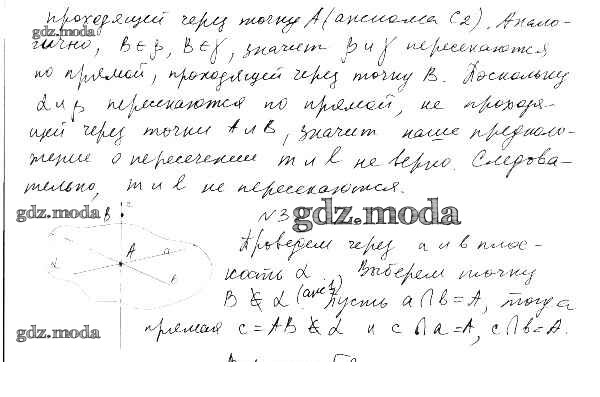 проходящей через точку A (аксиома C2). Анало-
gdz.moda
гично, B ∈ β, B ∈ γ, значит β и γ пересекаются
по прямой, проходящей через точку B. Поскольку
α и β пересекаются по прямой, не проходя-
щей через точки A и B, значит наше предполо-
жение о пересечении m и l не верно. Следова-
тельно, m и l не пересекаются.
gdz.moda
B
N3
gdz.moda
Проведём через a и b плос-
A
a
α
b
кость α (акс 1). Выберем точку
B ∉ α. Пусть a ∩ b = A, тогда
gdz.moda
прямая c = AB ⊄ α и c ∩ a = A, c ∩ b = A.